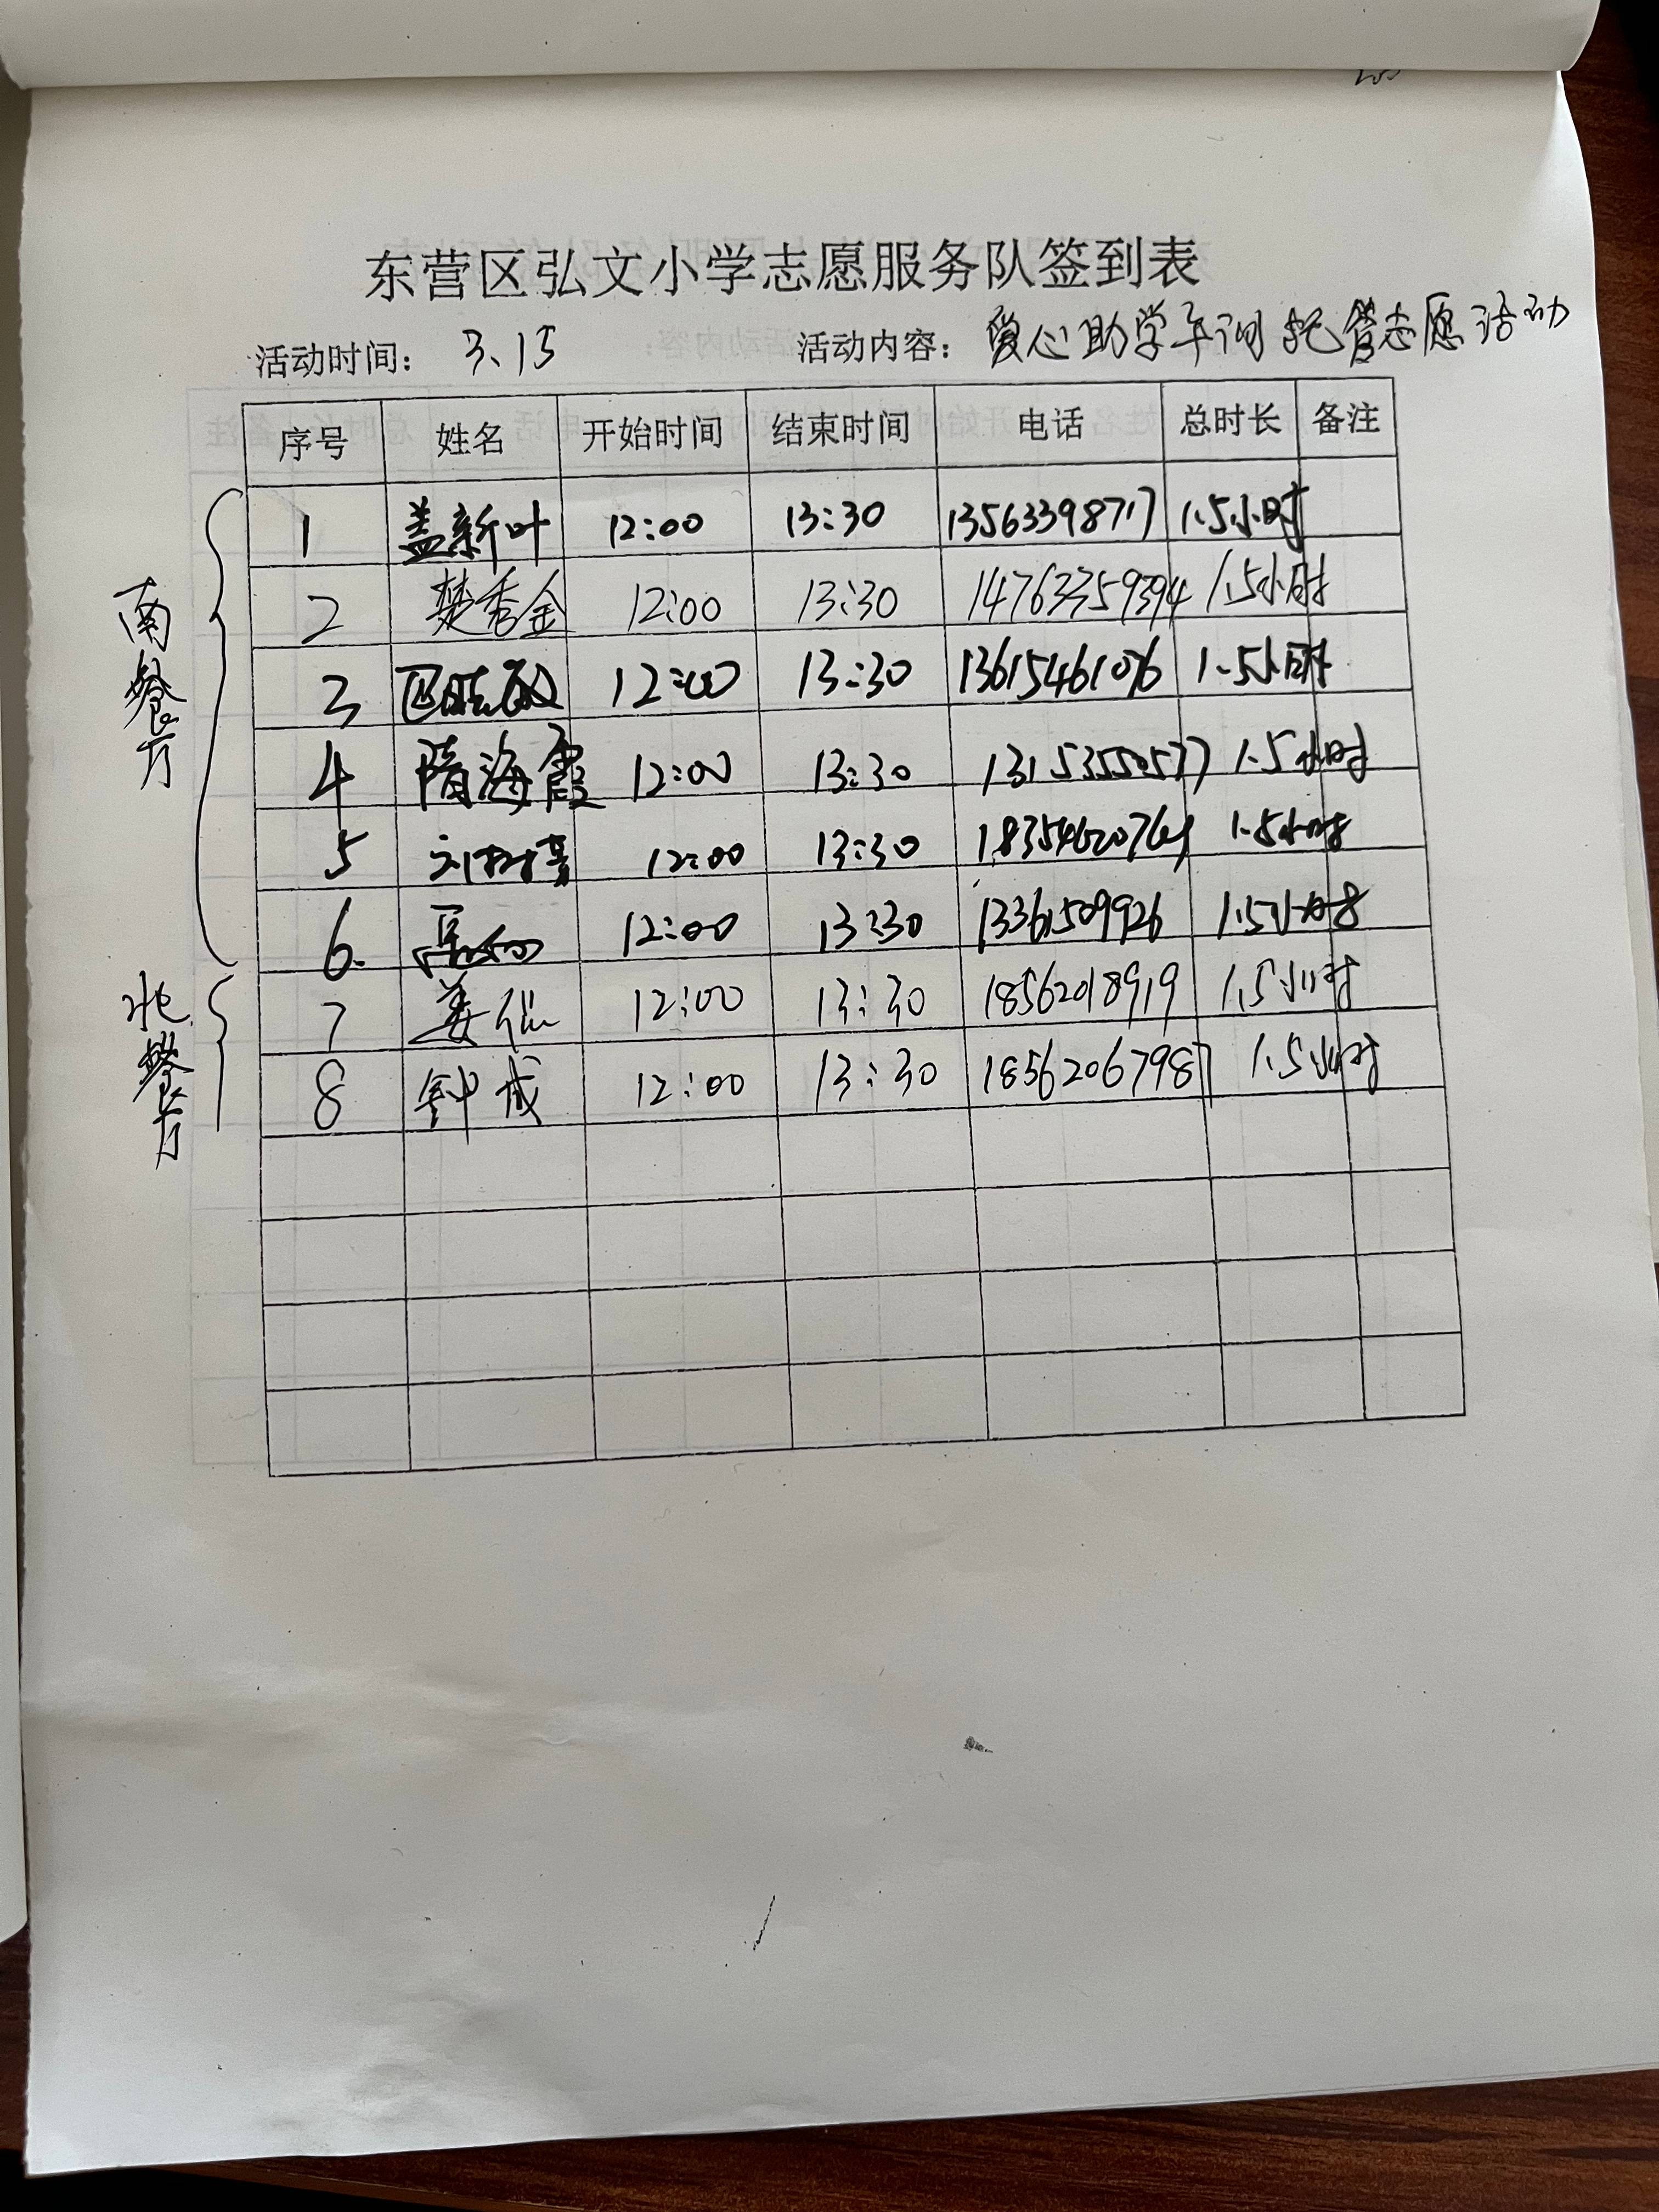 东营区弘文小学志愿服务队签到表
活动时间： 3.15 活动内容： 爱心助学午间托管志愿活动
序号 姓名 开始时间 结束时间 电话 总时长 备注
南餐厅
1 盖新叶 12:00 13:30 13563398717 1.5小时
2 楚秀金 12:00 13:30 14763359394 1.5小时
3 12:00 13:30 13615461076 1.5小时
4 隋海霞 12:00 13:30 13153550577 1.5小时
5 12:00 13:30 1.5小时
6. 12:00 13:30 13361509926 1.5小时
北餐厅
7 姜仙 12:00 13:30 18562018919 1.5小时
8 钟成 12:00 13:30 18562067987 1.5小时